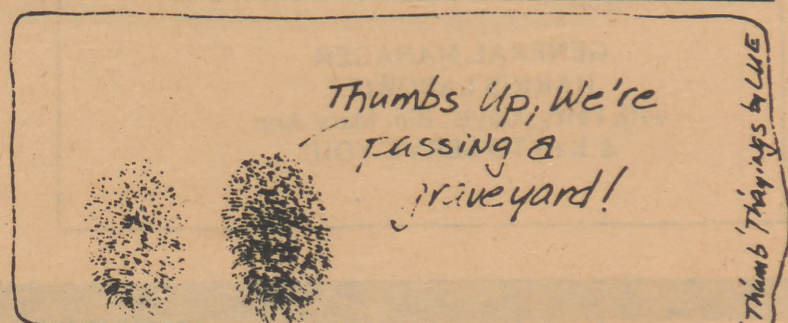 Thumbs Up, We're
passing a
graveyard!
'Thumb' Thayings by LUE